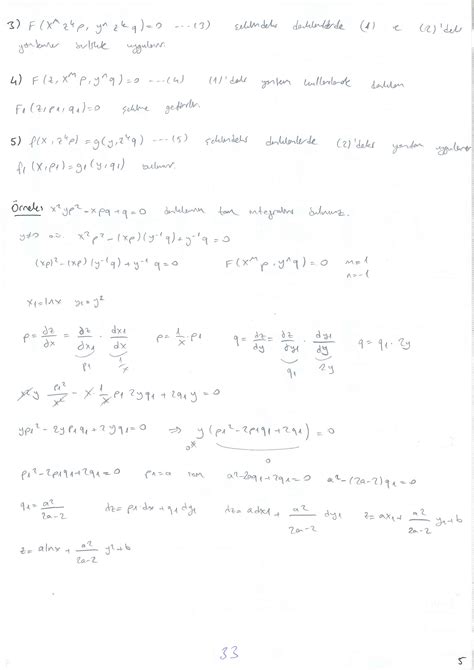 3) F(x^m z^k p, y^n z^k q)=0 ---(3) şeklindeki denklemlerde (1) ve (2)'deki
yöntemler birlikte uygulanır.
4) F(z, x^m p, y^n q)=0 ---(4) (1)'deki yöntem kullanılarak denklem
F1(z,p1,q1)=0 şekline getirilir.
5) f(x, z^k p)=g(y, z^k q) ---(5) şeklindeki denklemlerde (2)'deki yöntem uygulanır
f1(x,p1)=g1(y,q1) bulunur.
Örnek: x²yp²-xpq+q=0 denkleminin tam integralini bulunuz.
y≠0 x²p²-(xp)(y⁻¹q)+y⁻¹q=0
(xp)²-(xp)(y⁻¹q)+y⁻¹q=0 F(x^m p, y^n q)=0 m=1
n=-1
x1=lnx y1=y²
p=∂z/∂x=∂z/∂x1 · ∂x1/∂x p=1/x · p1 q=∂z/∂y=∂z/∂y1 · ∂y1/∂y q=q1 · 2y
p1 1/x q1 2y
x²y p1²/x² - x · 1/x p1 2yq1+2q1y=0
yp1²-2yp1q1+2yq1=0 ⇒ y(p1²-2p1q1+2q1)=0
≠0 0
p1²-2p1q1+2q1=0 p1=a için a²-2aq1+2q1=0 a²-(2a-2)q1=0
q1=a²/(2a-2) dz=p1dx1+q1dy1 dz=adx1+a²/(2a-2) dy1 z=ax1+a²/(2a-2) y1+b
z=alnx+a²/(2a-2) y²+b
33
5